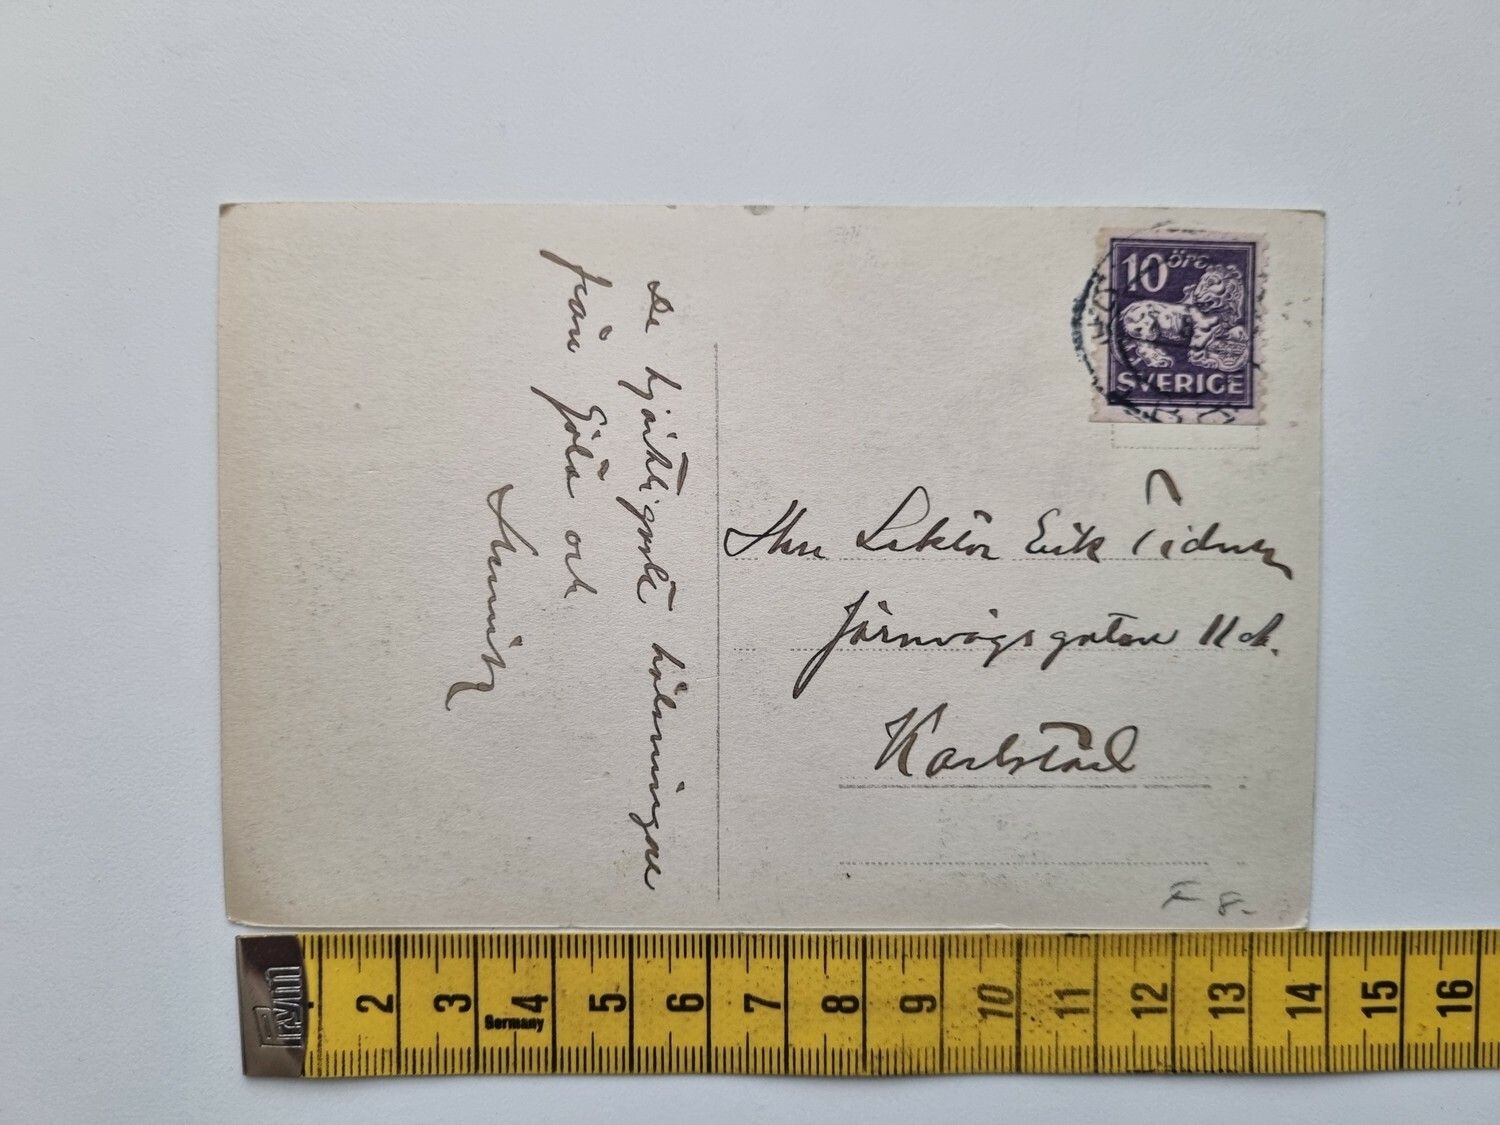 De hjärtligaste hälsningar
från Göta och
10 ÖRE
SVERIGE
Herr Lektör Erik Tidner
Järnvägsgatan 11 d.
Karlstad
F 8-
Prym
2 3 4 5 6 7 8 9 10 11 12 13 14 15 16
Germany